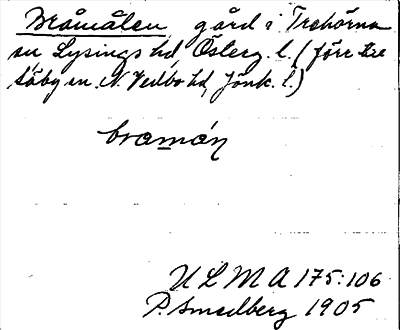 Bråmålen, gård i Trehörna
sn Lysings hd, Österg. l. (förr till
Säby sn. N. Vedbo hd, Jönk. l.)
bramån
ULMA 175:106
P. Smedberg 1905